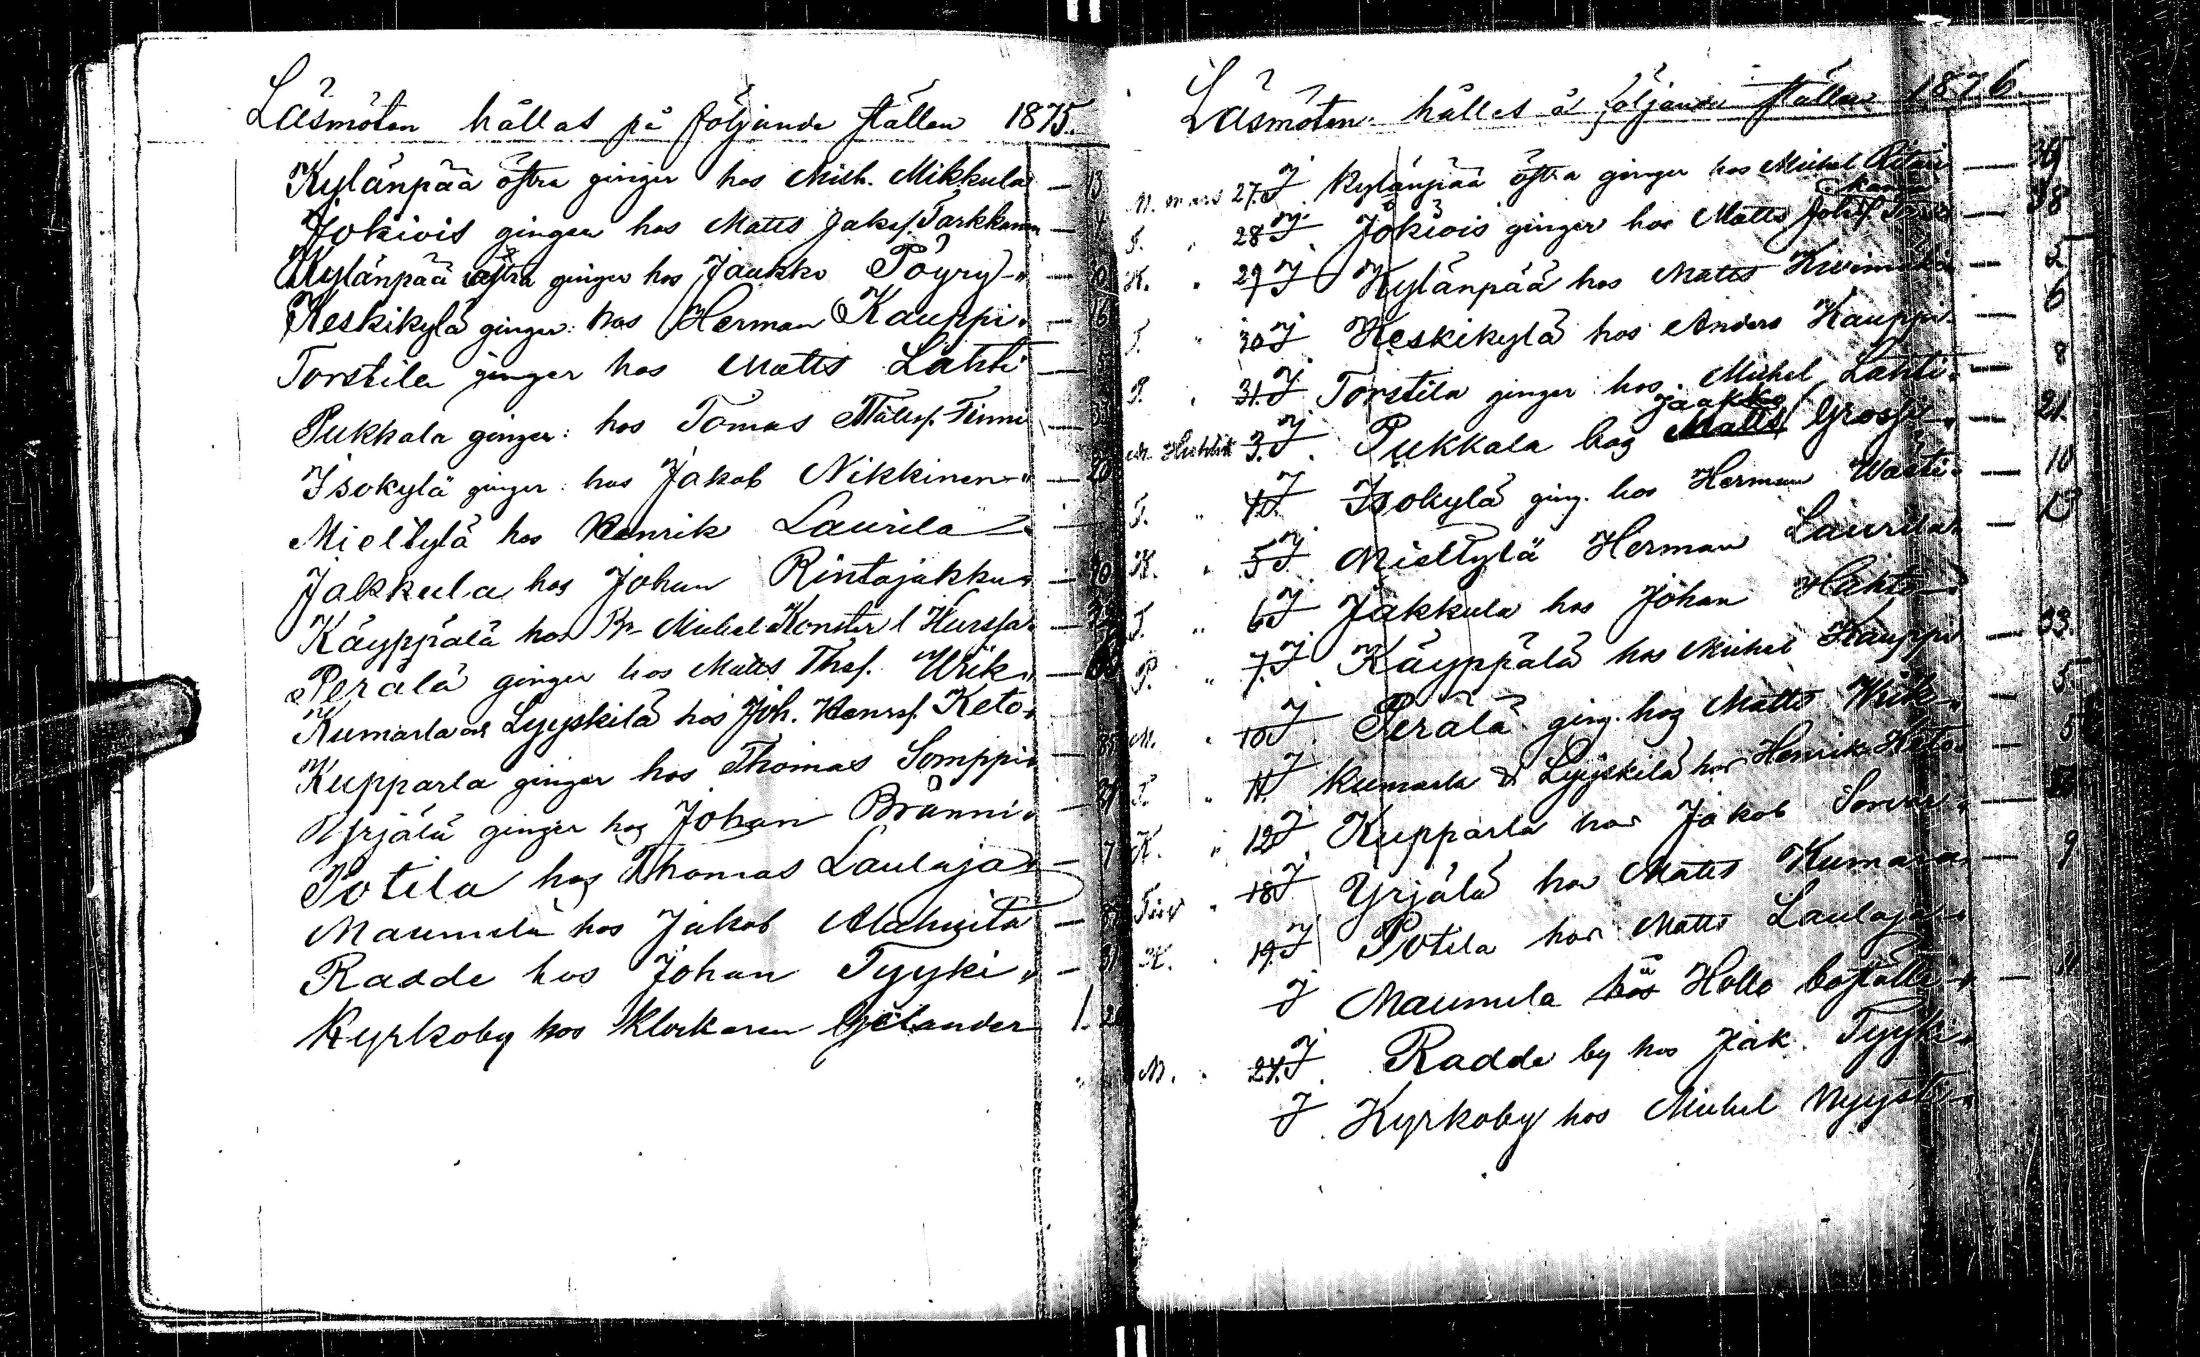 Läsmöten hållas på följande ställen 1875.
Kylänpää östra ginger hos Mich. Mikkula — 13
Jokivis ginger hos Matts Jakosf. Tarkkanen — 4
Kylänpää ginger hos Jaukko Pöyry —
Keskikylä ginger hos Herman Kauppi — 16
Torstila ginger hos Matts Lahti —
Pukkala ginger: hos Tomas Mattsf. Finni —
Isokylä ginger: hos Jakob Nikkinen — 20
Mieltylä hos Henrik Laurila
Jakkula hos Johan Rintajakku — 40
Käyppälä hos Michel Konster l Hurssa —
Perälä ginger hos Matts Thsf. Wiik —
Kumarla och Lyyskilä hos Joh. Henrsf. Keto
Kupparla ginger hos Thomas Somppi —
Yrjälä ginger hos Johan Bränni —
Potila hos Thomas Laulaja — 7
Maunula hos Jakob Alahuita —
Radde hos Johan Tyyki — 31
Kyrkoby hos Klockaren Gelander 1.
Läsmöten hålles å följande ställen 1876.
M. mars 27. J Kylänpää östra ginger hos Michel
T. " 28 J Jokivis ginger hos Matts — 38
K. " 29 J Kylänpää hos Matts — 5
T. " 30 J Keskikylä hos Anders Kauppi — 6
P. " 31. J Torstila ginger hos Michel Lahti — 8
Jaakko
3. J Pukkala hos Matts Grossi — 21.
T. " 4. J Isokylä ging. hos Herman Wästi — 10
K. " 5 J Mieltylä Herman Laurila — 13
T. " 6 J Jakkula hos Johan
P. " 7. J Käyppälä hos Michel Kauppi — 33.
M. " 10 J Perälä ging. hos Matts Wiik — 5
T. " 11. J Kumarla & Lyyskilä hos Henrik Keto — 5
K. " 12 J Kupparla hos Jakob
" 18 J Yrjälä hos Matts Kumara — 9
K. " 19. J Potila hos Matts Laulaja
J Maunula hos Hollo boställe — 11
M. " 24. J Radde by hos Jak. Tyyki
J Kyrkoby hos Michel Nyysti